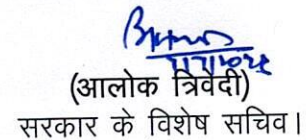 (आलोक त्रिवेदी)
सरकार के विशेष सचिव।